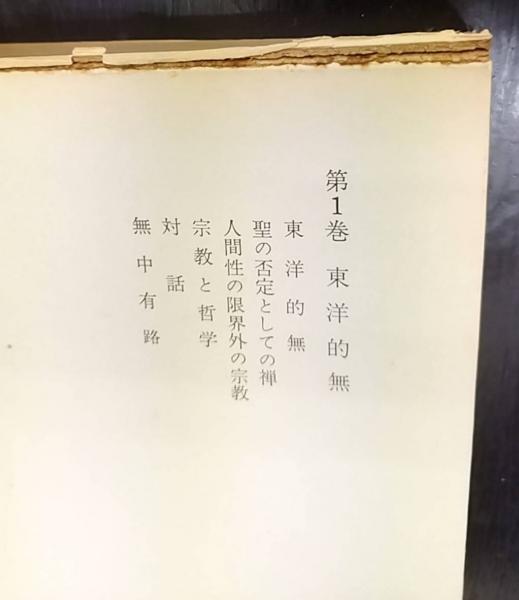 第1巻 東洋的無
東洋的無
聖の否定としての禅
人間性の限界外の宗教
宗教と哲学
対話
無中有路